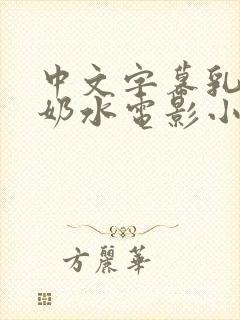 中文字幕乳
奶水电影小
方麗華